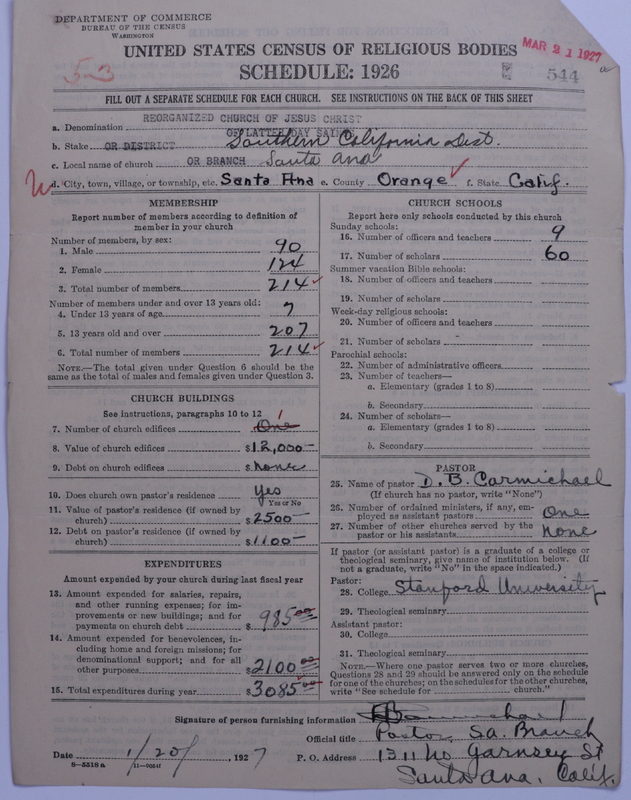 DEPARTMENT OF COMMERCE
BUREAU OF THE CENSUS
WASHINGTON
UNITED STATES CENSUS OF RELIGIOUS BODIES
MAR 21 1927
53
SCHEDULE: 1926
544
FILL OUT A SEPARATE SCHEDULE FOR EACH CHURCH. SEE INSTRUCTIONS ON THE BACK OF THIS SHEET
REORGANIZED CHURCH OF JESUS CHRIST
a. Denomination
OF LATTER DAY SAINTS
b. Stake OR DISTRICT Southern California Dist.
c. Local name of church OR BRANCH Santa Ana
d. City, town, village, or township, etc. Santa Ana e. County Orange f. State Calif.
MEMBERSHIP
Report number of members according to definition of member in your church
Number of members, by sex:
1. Male 90
2. Female 124
3. Total number of members 214
Number of members under and over 13 years old:
4. Under 13 years of age 7
5. 13 years old and over 207
6. Total number of members 214
NOTE.—The total given under Question 6 should be
same as the total of males and females given under Question 3.
CHURCH BUILDINGS
See instructions, paragraphs 10 to 12
7. Number of church edifices One 1
8. Value of church edifices $12,000—
9. Debt on church edifices $ None
10. Does church own pastor's residence Yes
Yes or No
11. Value of pastor's residence (if owned by
church) $2500—
12. Debt on pastor's residence (if owned by
church) $1100—
EXPENDITURES
Amount expended by your church during last fiscal year
13. Amount expended for salaries, repairs,
and other running expenses; for im-
provements or new buildings; and for
payments on church debt $ 985 00
14. Amount expended for benevolences, in-
cluding home and foreign missions; for
denominational support; and for all
other purposes $2100 00
15. Total expenditures during year $3085 00
CHURCH SCHOOLS
Report here only schools conducted by this church
Sunday schools:
16. Number of officers and teachers 9
17. Number of scholars 60
Summer vacation Bible schools:
18. Number of officers and teachers
19. Number of scholars
Week-day religious schools:
20. Number of officers and teachers
21. Number of scholars
Parochial schools:
22. Number of administrative officers
23. Number of teachers—
a. Elementary (grades 1 to 8)
b. Secondary
24. Number of scholars—
a. Elementary (grades 1 to 8)
b. Secondary
PASTOR
25. Name of pastor D. B. Carmichael
(If church has no pastor, write "None")
26. Number of ordained ministers, if any, em-
ployed as assistant pastors One
27. Number of other churches served by the
pastor or his assistants None
If pastor (or assistant pastor) is a graduate of a college or
theological seminary, give name of institution below. (If
not a graduate, write "No" in the space indicated.)
Pastor:
28. College Stanford University
29. Theological seminary
Assistant pastor:
30. College
31. Theological seminary
NOTE.—Where one pastor serves two or more churches,
Questions 28 and 29 should be answered only on the schedule
for one of the churches; on the schedules for the other churches,
write "See schedule for church."
Signature of person furnishing information Carmichael
Official title Pastor, S.A. Branch
Date 1/20/, 1927 P. O. Address 1311 No Garnsey St
8—5518 a
Santa Ana, Calif.